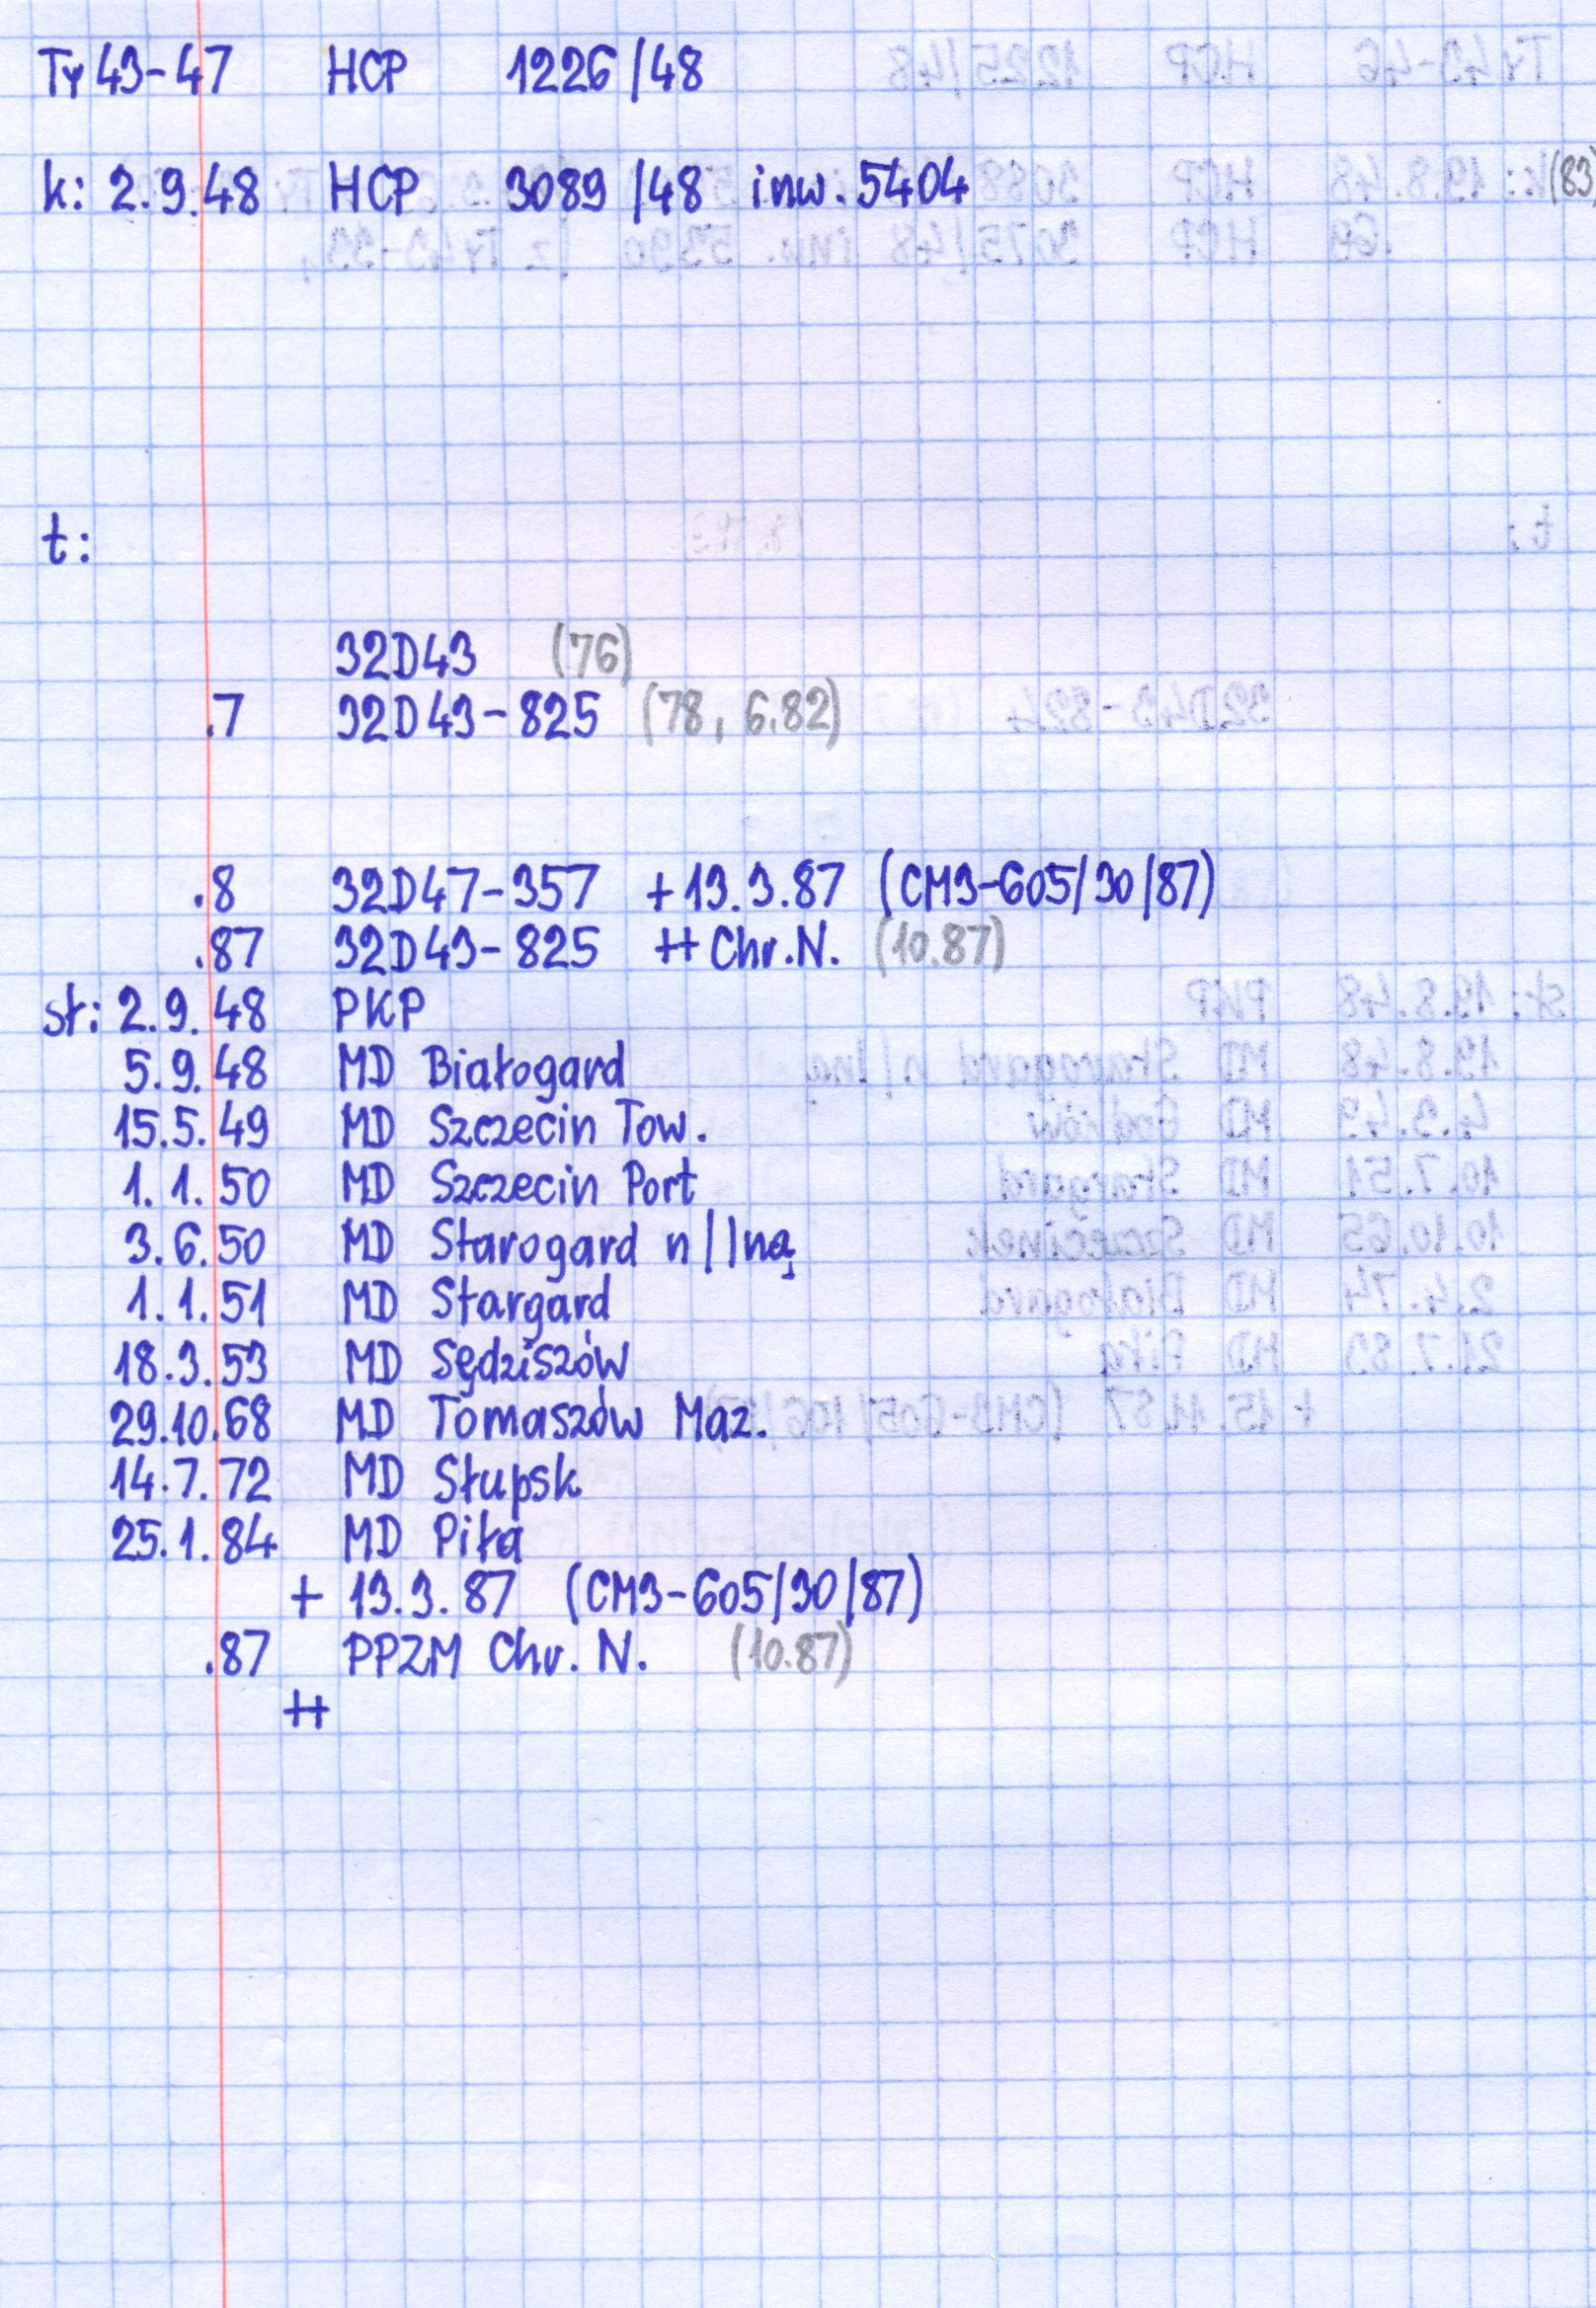 Ty43-47 HCP 1226/48
k: 2.9.48 HCP 3089/48 inw. 5404 (83)
t:
32D43 (76)
.7 32D43-825 (78, 6.82)
.8 32D47-357 + 13.3.87 (CM3-605/30/87)
.87 32D43-825 ++ Chr.N. (10.87)
st: 2.9.48 PKP
5.9.48 MD Białogard
15.5.49 MD Szczecin Tow.
1.1.50 MD Szczecin Port
3.6.50 MD Starogard n/Iną
1.1.51 MD Stargard
18.3.53 MD Sędziszów
29.10.68 MD Tomaszów Maz.
14.7.72 MD Słupsk
25.1.84 MD Piła
+ 13.3.87 (CM3-605/30/87)
.87 PPZM Chr. N. (10.87)
++